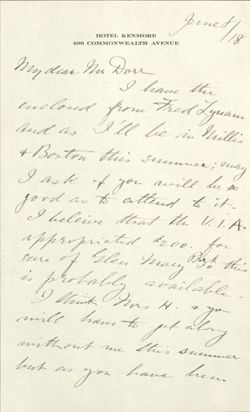 June 8/18
HOTEL KENMORE
490 COMMONWEALTH AVENUE
My dear Mr Dorr
I have the
enclosed from Fred Lynam
and as I'll be in Millis
& Boston this summer, may
I ask if you will be so
good as to attend to it.
I beleive that the V.I.A.
appropriated $200. for
care of Glen Mary Park so this
is probably available.
I think Mrs H. & you
will have to get along
without me this summer
but as you have been